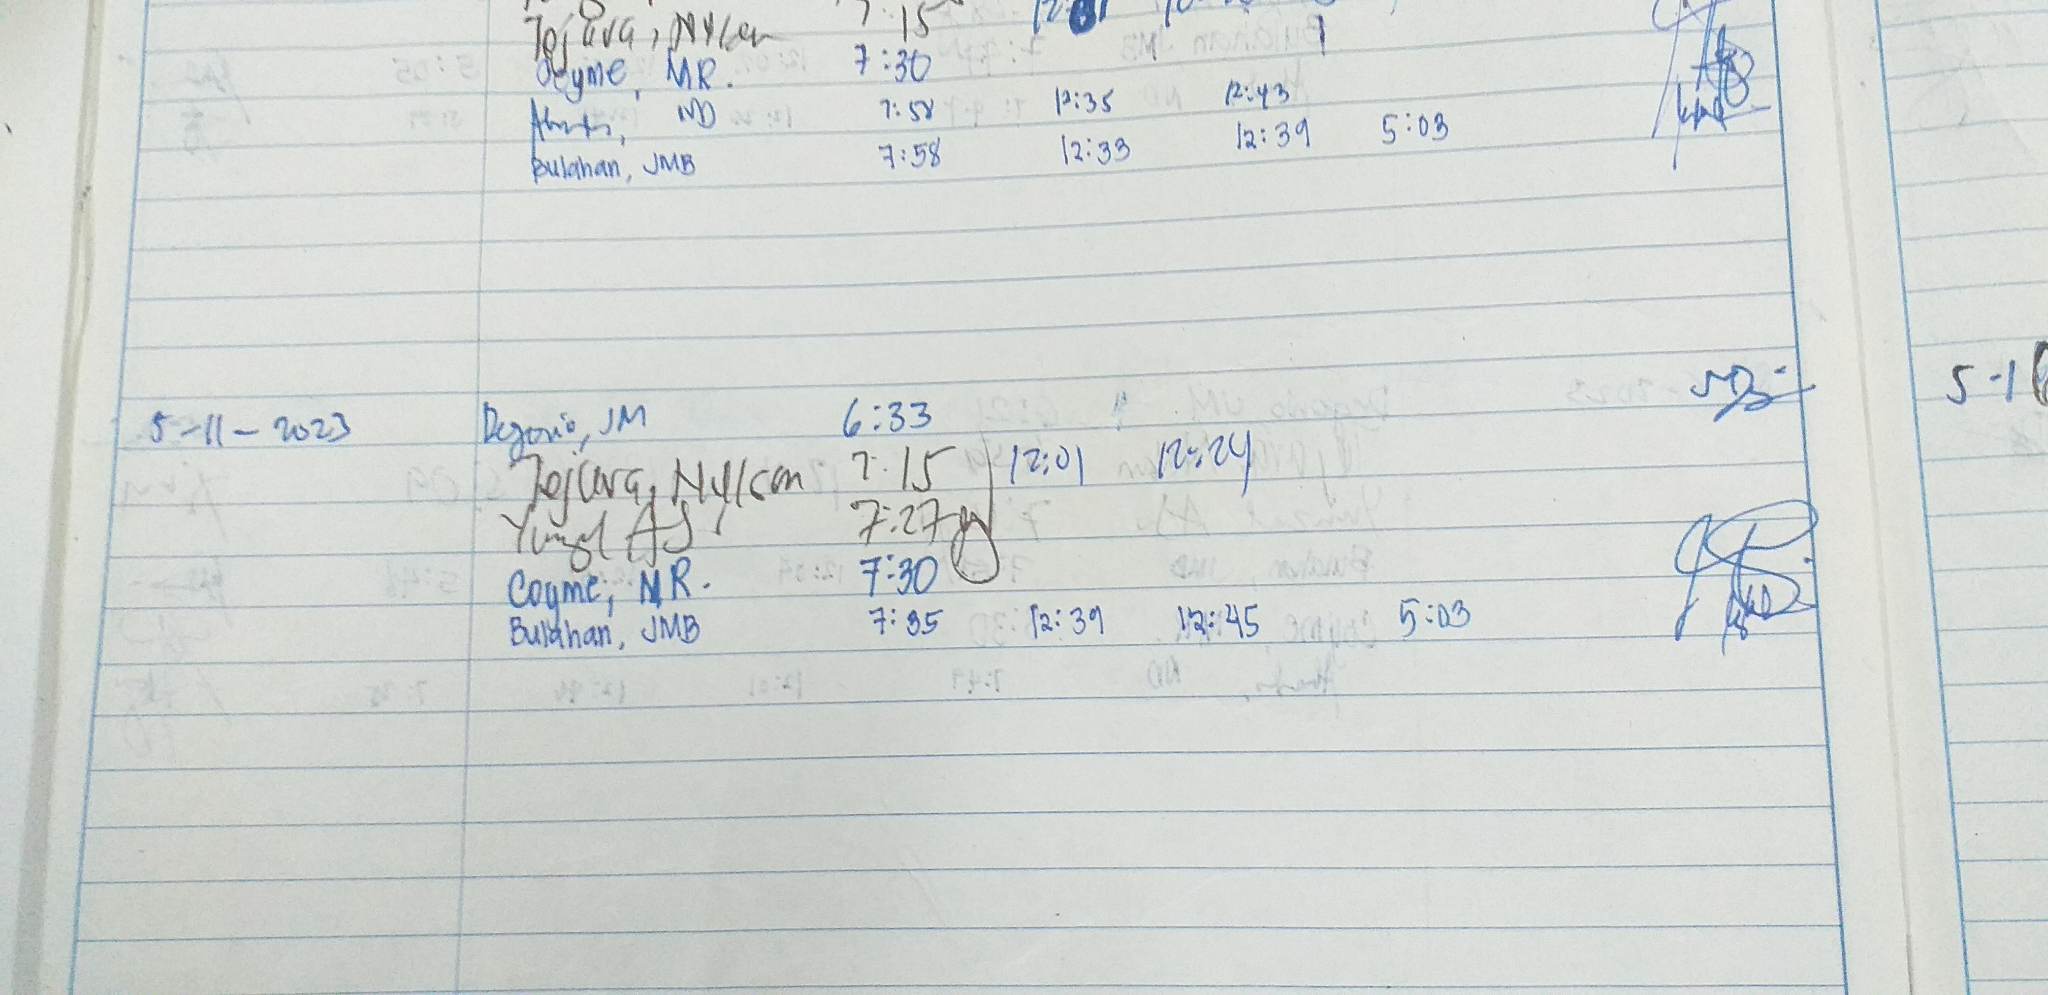 Tejara, Nylson 7:15 12:01
Coyme, MR. 7:30
ND 7:58 12:35 12:43
Bulahan, JMB 7:58 12:33 12:39 5:03
5-11-2023 Degorio, JM 6:33
Tejara, Nylson 7:15 12:01 12:24
AJ 7:27
Coyme, MR. 7:30
Bulahan, JMB 7:35 12:39 12:45 5:03
5-1